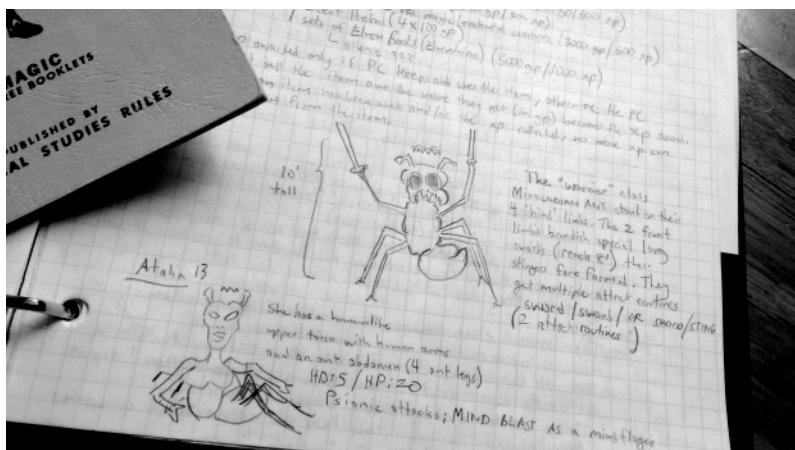 MAGIC
REE BOOKLETS
PUBLISHED BY
AL STUDIES RULES
(4 x 100 gp)
sets of Elven Boots (Elvenkind) (5000 gp/1000 xp)
awarded only if PC keeps and uses the item, otherwise the PC
sell the item and the value they get (in gp) becomes the xp award.
item has been used and/or the xp collected, no more xp can
from the item.
10'
tall
The "warrior" class
ANT stand on their
4 'hind' limbs. The 2 front
limbs brandish special long
swords (reach 8') their
stingers face forward. They
get multiple attack routines
sword/sword/ OR sword/STING
(2 attack routines)
Atalia 13
She has a humanlike
upper torso with human arms
and an ant abdomen (4 ant legs)
HD:5 / HP:20
Psionic attacks; MIND BLAST AS a mindflayer